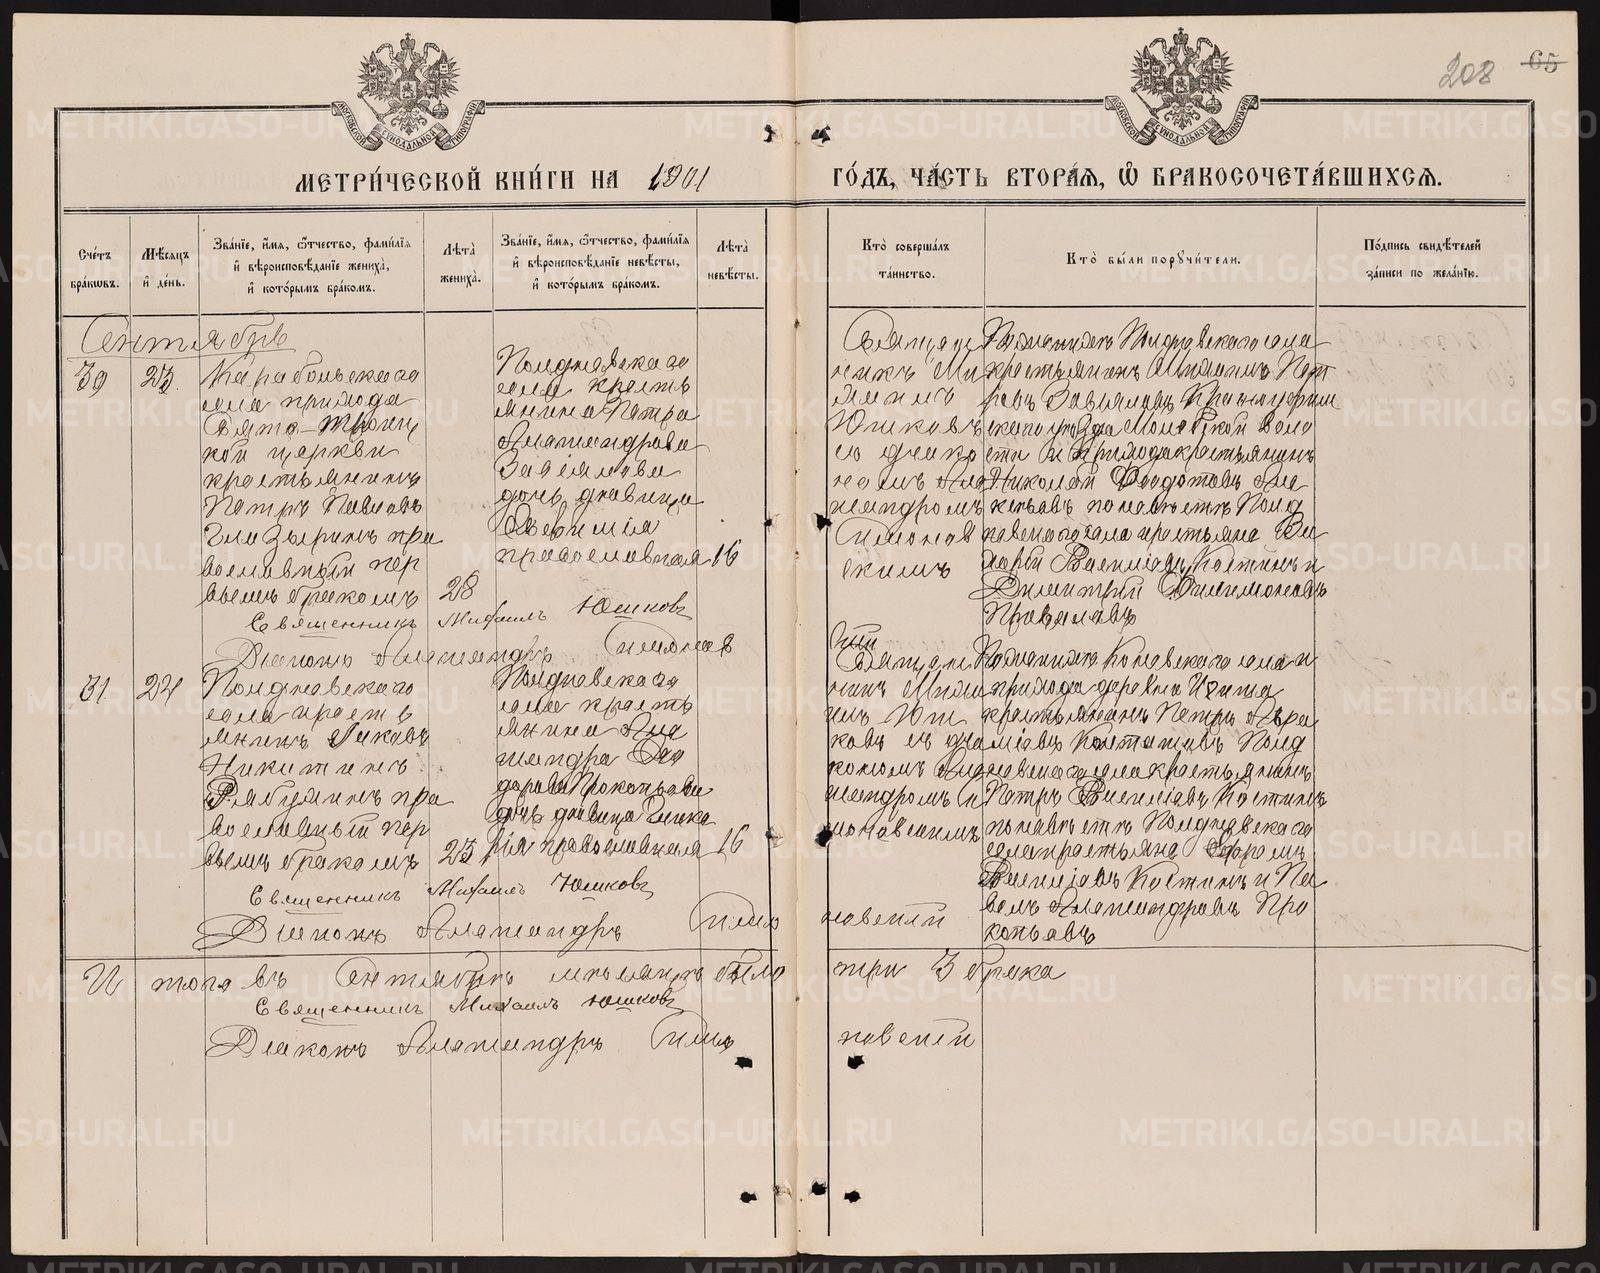 208 65
МОСКОВСКОЙ СѴНОДАЛЬНОЙ ТИПОГРАФІИ
МОСКОВСКОЙ СѴНОДАЛЬНОЙ ТИПОГРАФІИ
МЕТРИ́ЧЕСКОЙ КНИ́ГИ НА 1901
ГО́ДЪ, ЧА́СТЬ ВТОРА́Я, Ѡ҆ БРАКОСОЧЕТА́ВШИХСЯ.
Сче́тъ
бра́кωвъ.
Мѣ́сяцъ
и҆ де́нь.
Зва́нїе, и҆́мя, ѻ҆́тчество, фами́лїя
и҆ вѣроисповѣ́данїе жениха̀,
и҆ кото́рымъ бра́комъ.
Лѣ́та
жениха̀.
Зва́нїе, и҆́мя, ѻ҆́тчество, фами́лїя
и҆ вѣроисповѣ́данїе невѣ́сты,
и҆ кото́рымъ бра́комъ.
Лѣ́та
невѣ́сты.
Кто̀ соверша́лъ
та́инство.
Кто̀ бы́ли порꙋчи́тели.
По́дпись свидѣ́телей
за́писи по жела́нїю.
Сентябрь
30
23.
Карабольскаго
села прихода
Свято-Троиц
кой церкви
крестьянинъ
Петръ Павловъ
Глазыринъ пра
вославный пер
вымъ бракомъ
28
Полдневскаго
села кресть
янина Петра
Александрова
Завьялова
дочь девица
Евфимія
православная
16
Священ
никъ Ми
хаилъ
Юшковъ
съ діако
номъ Але
ксандромъ
Симонов
скимъ
По женихѣ Полдневскаго села
крестьянинъ Михаилъ Пет
ровъ Завьяловъ Красноуфим
скаго уѣзда
крестьянинъ
Николай Федотовъ
по невѣстѣ Полд
невскаго села крестьяне
Василіевъ Костинъ и
Димитрій Филимоновъ
Священникъ Михаилъ Юшковъ
Діаконъ Александръ Симонов
скій
31
24
Полдневскаго
села кресть
янинъ Яковъ
Никитинъ
Рябухинъ пра
вославный пер
вымъ бракомъ
25
Полдневскаго
села кресть
янина Але
ксандра Фео
дорова Прокопьева
дочь девица Глике
рія православная
16
Священ
никъ Миха
илъ Юш
ковъ съ діа
кономъ Але
ксандромъ Си
моновскимъ
По женихѣ
прихода деревни
крестьянинъ Петръ Авра
міевъ Полд
невскаго села крестьянинъ
Петръ Василіевъ Костинъ
по невѣстѣ Полдневскаго
села крестьяне Ефремъ
Василіевъ Костинъ и Па
велъ Александровъ Про
копьевъ
Священникъ Михаилъ Юшковъ
Діаконъ Александръ Симо новскій
Итого въ Сентябрѣ мѣсяцѣ было три 3 брака
Священникъ Михаилъ Юшковъ
Діаконъ Александръ Симо новскій